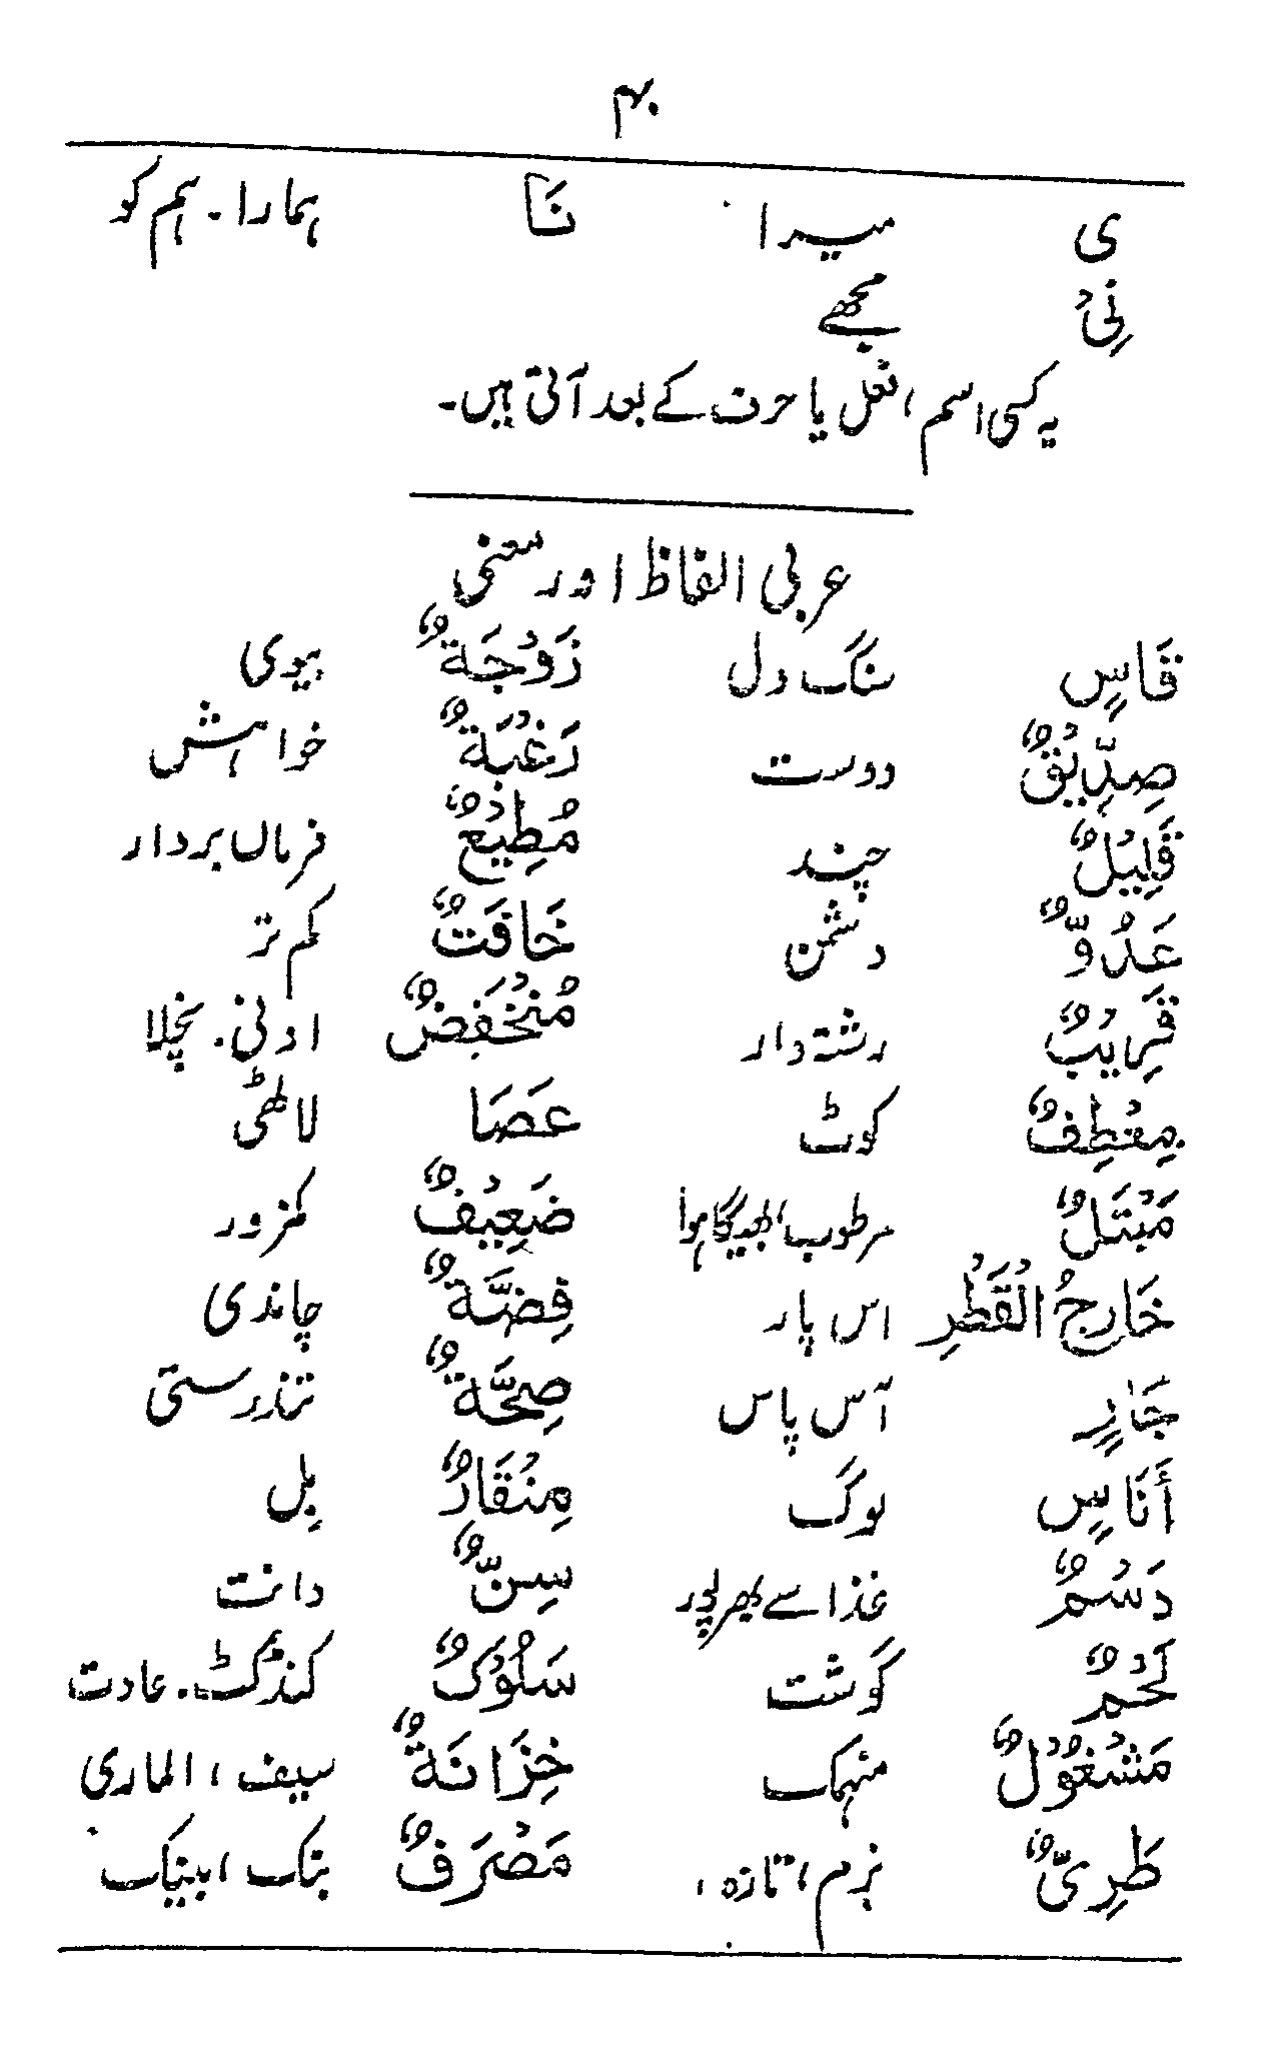 ۴۰
ی میرا نَا ہمارا۔ ہم کو
نِیْ مجھے
یہ کسی اسم، فعل یا حرف کے بعد آتی ہیں۔
عربی الفاظ اور معنی
قَاسٍ سنگ دل زَوْجَةٌ بیوی
صِدِّیْقٌ دوست رَغْبَةٌ خواہش
قَلِیْلٌ چند مُطِیْعٌ فرماں بردار
عَدُوٌّ دشمن خَافَتٌ کم تر
قَرِیْبٌ رشتہ دار مُنْخَفَضٌ ادنیٰ۔ نچلا
مِعْطِفٌ کوٹ عَصَا لاٹھی
مَبْتَلٌ مرطوب، بھیگا ہوا ضَعِیْفٌ کمزور
خَارِجُ الْقُطْرِ اس پار فِضَّةٌ چاندی
جَارٍ آس پاس صِحَّةٌ تندرستی
أَنَاسٍ لوگ مِنْقَارٌ بِل
دَسْمٌ غذا سے بھرپور سِنٌّ دانت
لَحْمٌ گوشت سَلُوْکٌ کنڈکٹ۔ عادت
مَشْغُوْلٌ منہمک خِزَانَةٌ سیف، الماری
طَرِیٌّ نرم، تازہ، مَصْرَفٌ بنک، بینک